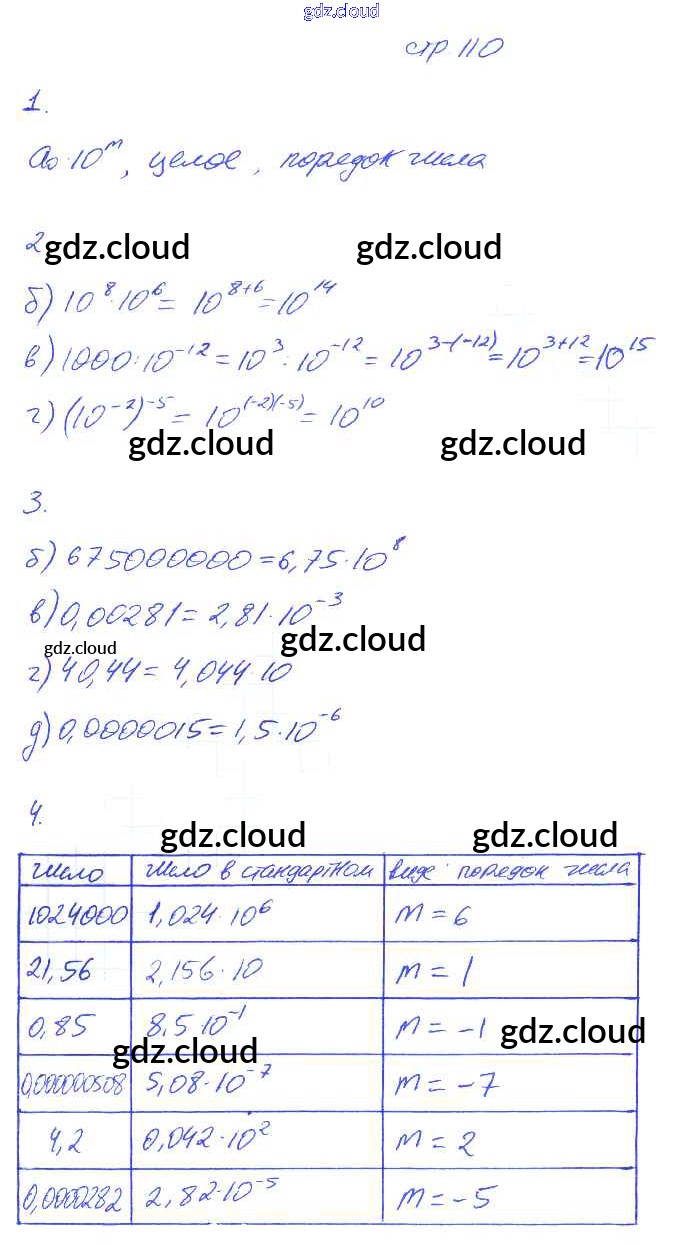 gdz.cloud
стр 110
1.
a₀·10ᵐ, целое, поредок числа
2 gdz.cloud gdz.cloud
б) 10⁸·10⁶ = 10⁸⁺⁶ = 10¹⁴
в) 1000:10⁻¹² = 10³ : 10⁻¹² = 10³⁻⁽⁻¹²⁾ = 10³⁺¹² = 10¹⁵
г) (10⁻²)⁻⁵ = 10⁽⁻²⁾⁽⁻⁵⁾ = 10¹⁰
gdz.cloud gdz.cloud
3.
б) 675000000 = 6,75·10⁸
в) 0,00281 = 2,81·10⁻³
gdz.cloud gdz.cloud
г) 40,44 = 4,044·10
д) 0,0000015 = 1,5·10⁻⁶
4.
gdz.cloud gdz.cloud
число число в стандартном виде поредок числа
1024000 1,024·10⁶ m = 6
21,56 2,156·10 m = 1
0,85 8,5·10⁻¹ m = -1 gdz.cloud
gdz.cloud
0,000000508 5,08·10⁻⁷ m = -7
4,2 0,042·10² m = 2
0,0000282 2,82·10⁻⁵ m = -5